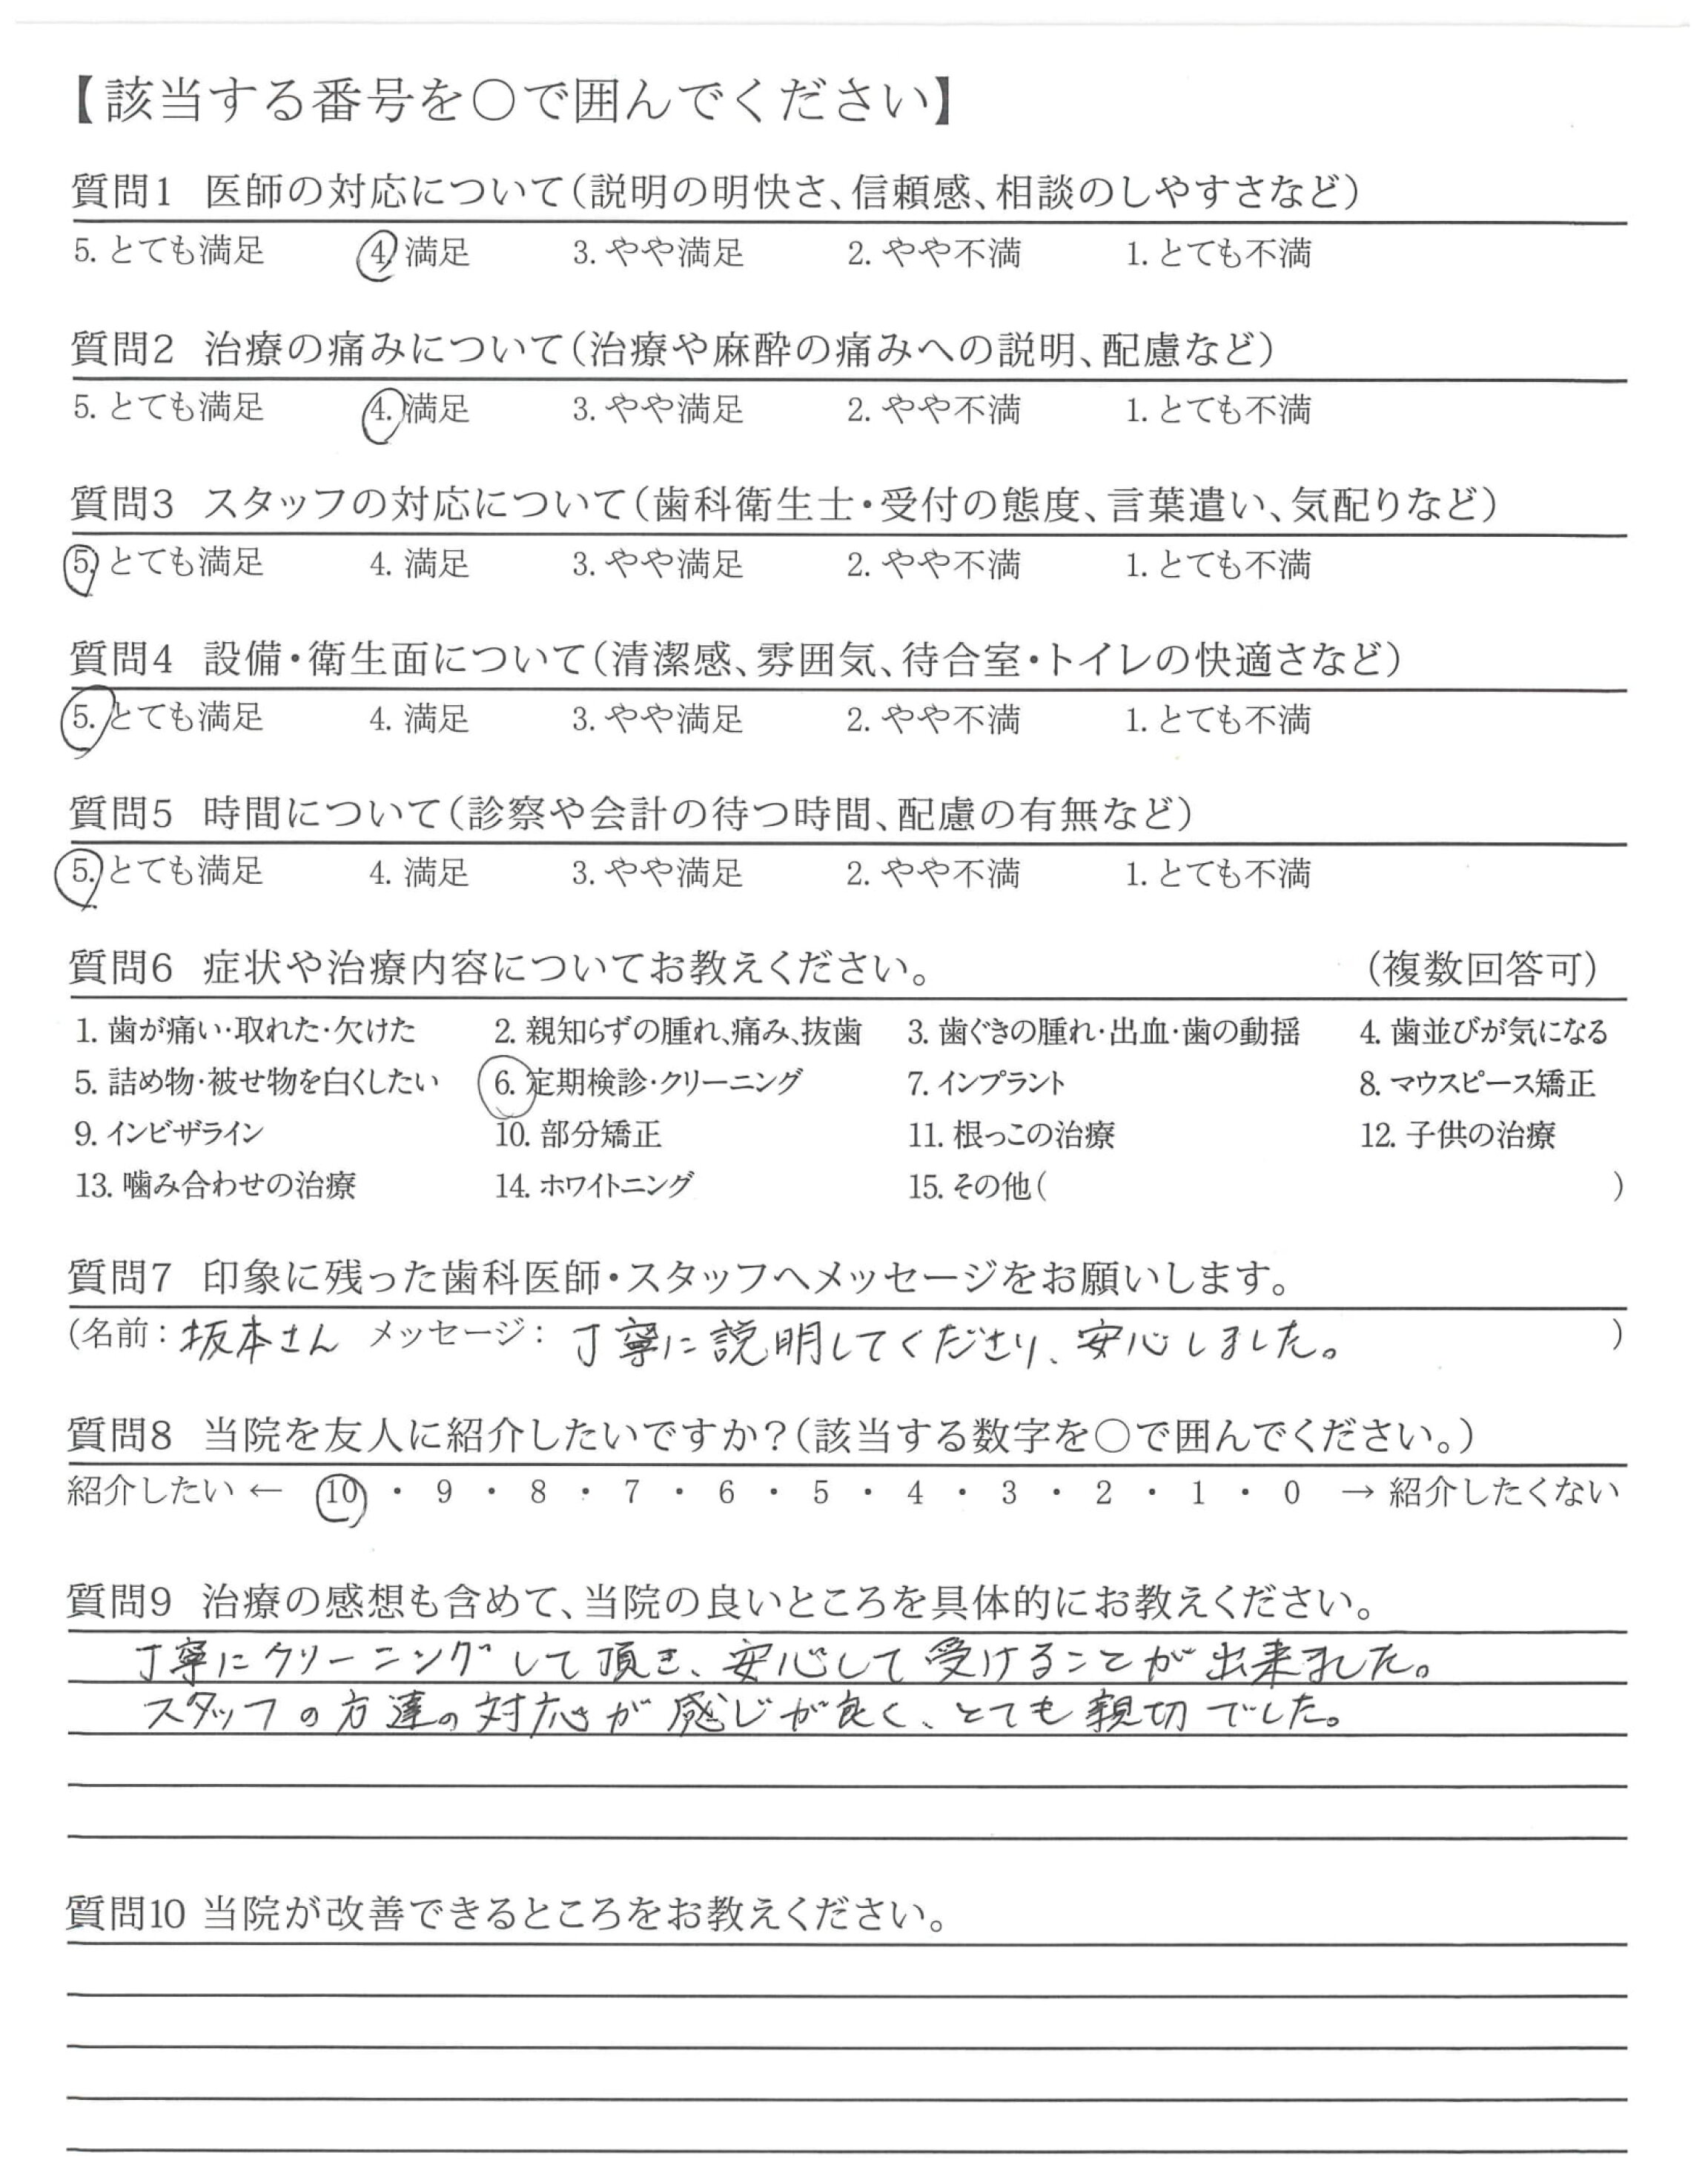 【該当する番号を○で囲んでください】
質問1 医師の対応について(説明の明快さ、信頼感、相談のしやすさなど)
5. とても満足 4. 満足 3. やや満足 2. やや不満 1. とても不満
質問2 治療の痛みについて(治療や麻酔の痛みへの説明、配慮など)
5. とても満足 4. 満足 3. やや満足 2. やや不満 1. とても不満
質問3 スタッフの対応について(歯科衛生士・受付の態度、言葉遣い、気配りなど)
5. とても満足 4. 満足 3. やや満足 2. やや不満 1. とても不満
質問4 設備・衛生面について(清潔感、雰囲気、待合室・トイレの快適さなど)
5. とても満足 4. 満足 3. やや満足 2. やや不満 1. とても不満
質問5 時間について(診察や会計の待つ時間、配慮の有無など)
5. とても満足 4. 満足 3. やや満足 2. やや不満 1. とても不満
質問6 症状や治療内容についてお教えください。 (複数回答可)
1. 歯が痛い・取れた・欠けた 2. 親知らずの腫れ、痛み、抜歯 3. 歯ぐきの腫れ・出血・歯の動揺 4. 歯並びが気になる
5. 詰め物・被せ物を白くしたい 6. 定期検診・クリーニング 7. インプラント 8. マウスピース矯正
9. インビザライン 10. 部分矯正 11. 根っこの治療 12. 子供の治療
13. 噛み合わせの治療 14. ホワイトニング 15. その他( )
質問7 印象に残った歯科医師・スタッフへメッセージをお願いします。
(名前: 坂本さん メッセージ: 丁寧に説明してくださり、安心しました。 )
質問8 当院を友人に紹介したいですか?(該当する数字を○で囲んでください。)
紹介したい ← 10 ・ 9 ・ 8 ・ 7 ・ 6 ・ 5 ・ 4 ・ 3 ・ 2 ・ 1 ・ 0 → 紹介したくない
質問9 治療の感想も含めて、当院の良いところを具体的にお教えください。
丁寧にクリーニングして頂き、安心して受けることが出来ました。
スタッフの方達の対応が感じが良く、とても親切でした。
質問10 当院が改善できるところをお教えください。